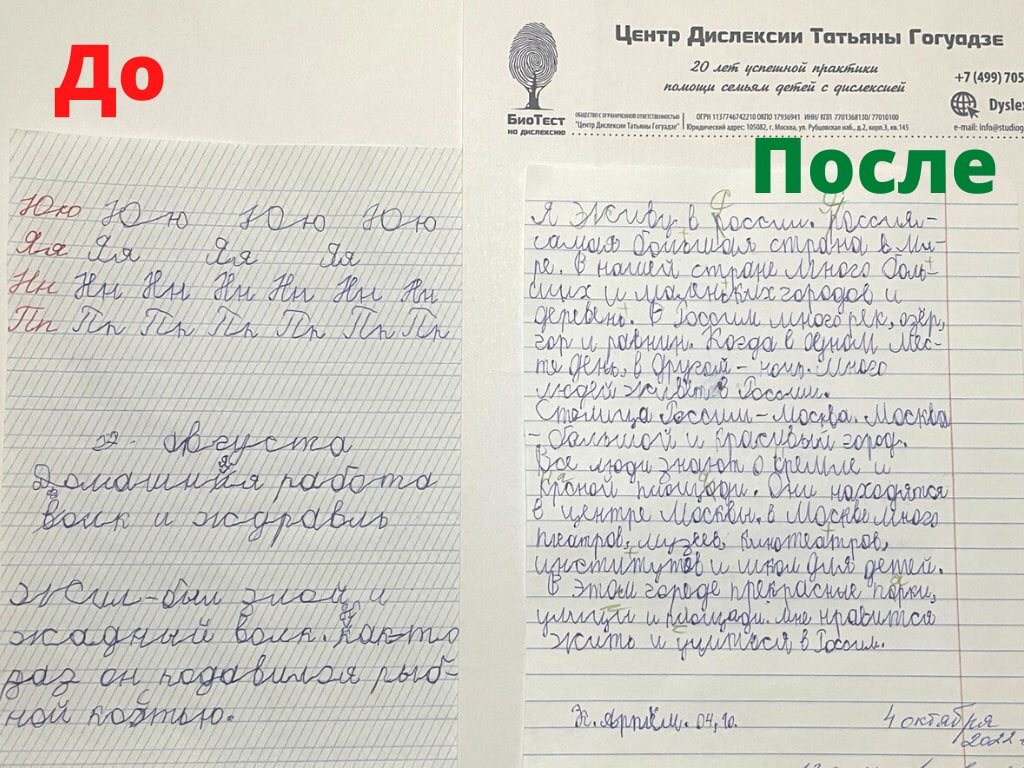 До
Юю Юю Юю Юю
Яя Яя Яя Яя
Нн Нн Нн Нн Нн Нн Нн
Пп Пп Пп Пп Пп Пп Пп
2 августа
Домашняя работа
Волк и ждравль
Жил-был злой и
жадный волк. Как-то
раз он подавился рыб-
ной костью.
БиоТест
на дислексию
Центр Дислексии Татьяны Гогуадзе
20 лет успешной практики
помощи семьям детей с дислексией
+7 (499) 705
Dyslex
e-mail: info@studiog
ОБЩЕСТВО С ОГРАНИЧЕННОЙ ОТВЕТСТВЕННОСТЬЮ
"Центр Дислексии Татьяны Гогуадзе"
ОГРН 1137746742210 ОКПО 17936941 ИНН/ КПП 7701368150/ 77010100
Юридический адрес: 105082, г. Москва, ул. Рубцовская наб., д.2, корп.3, кв.145
После
Я Живу в России. Россия-
самая большая страна в ми-
ре. В нашей стране много боль-
ших и маленьких городов и
деревень. В России много рек, озёр,
гор и равнин. Когда в одном мес-
те день, в другом - ночь. Много
людей живёт в России.
Столица России - Москва. Москва
- большой и красивый город.
Все люди знают о кремле и
Красной площади. Они находятся
в центре Москвы. в Москве много
театров, музеев, кинотеатров,
институтов и школ для детей.
В этом городе прекрасные парки,
улицы и площади. Мне нравится
жить и учиться в России.
К. Артём. 04.10.
4 октября
2022 г